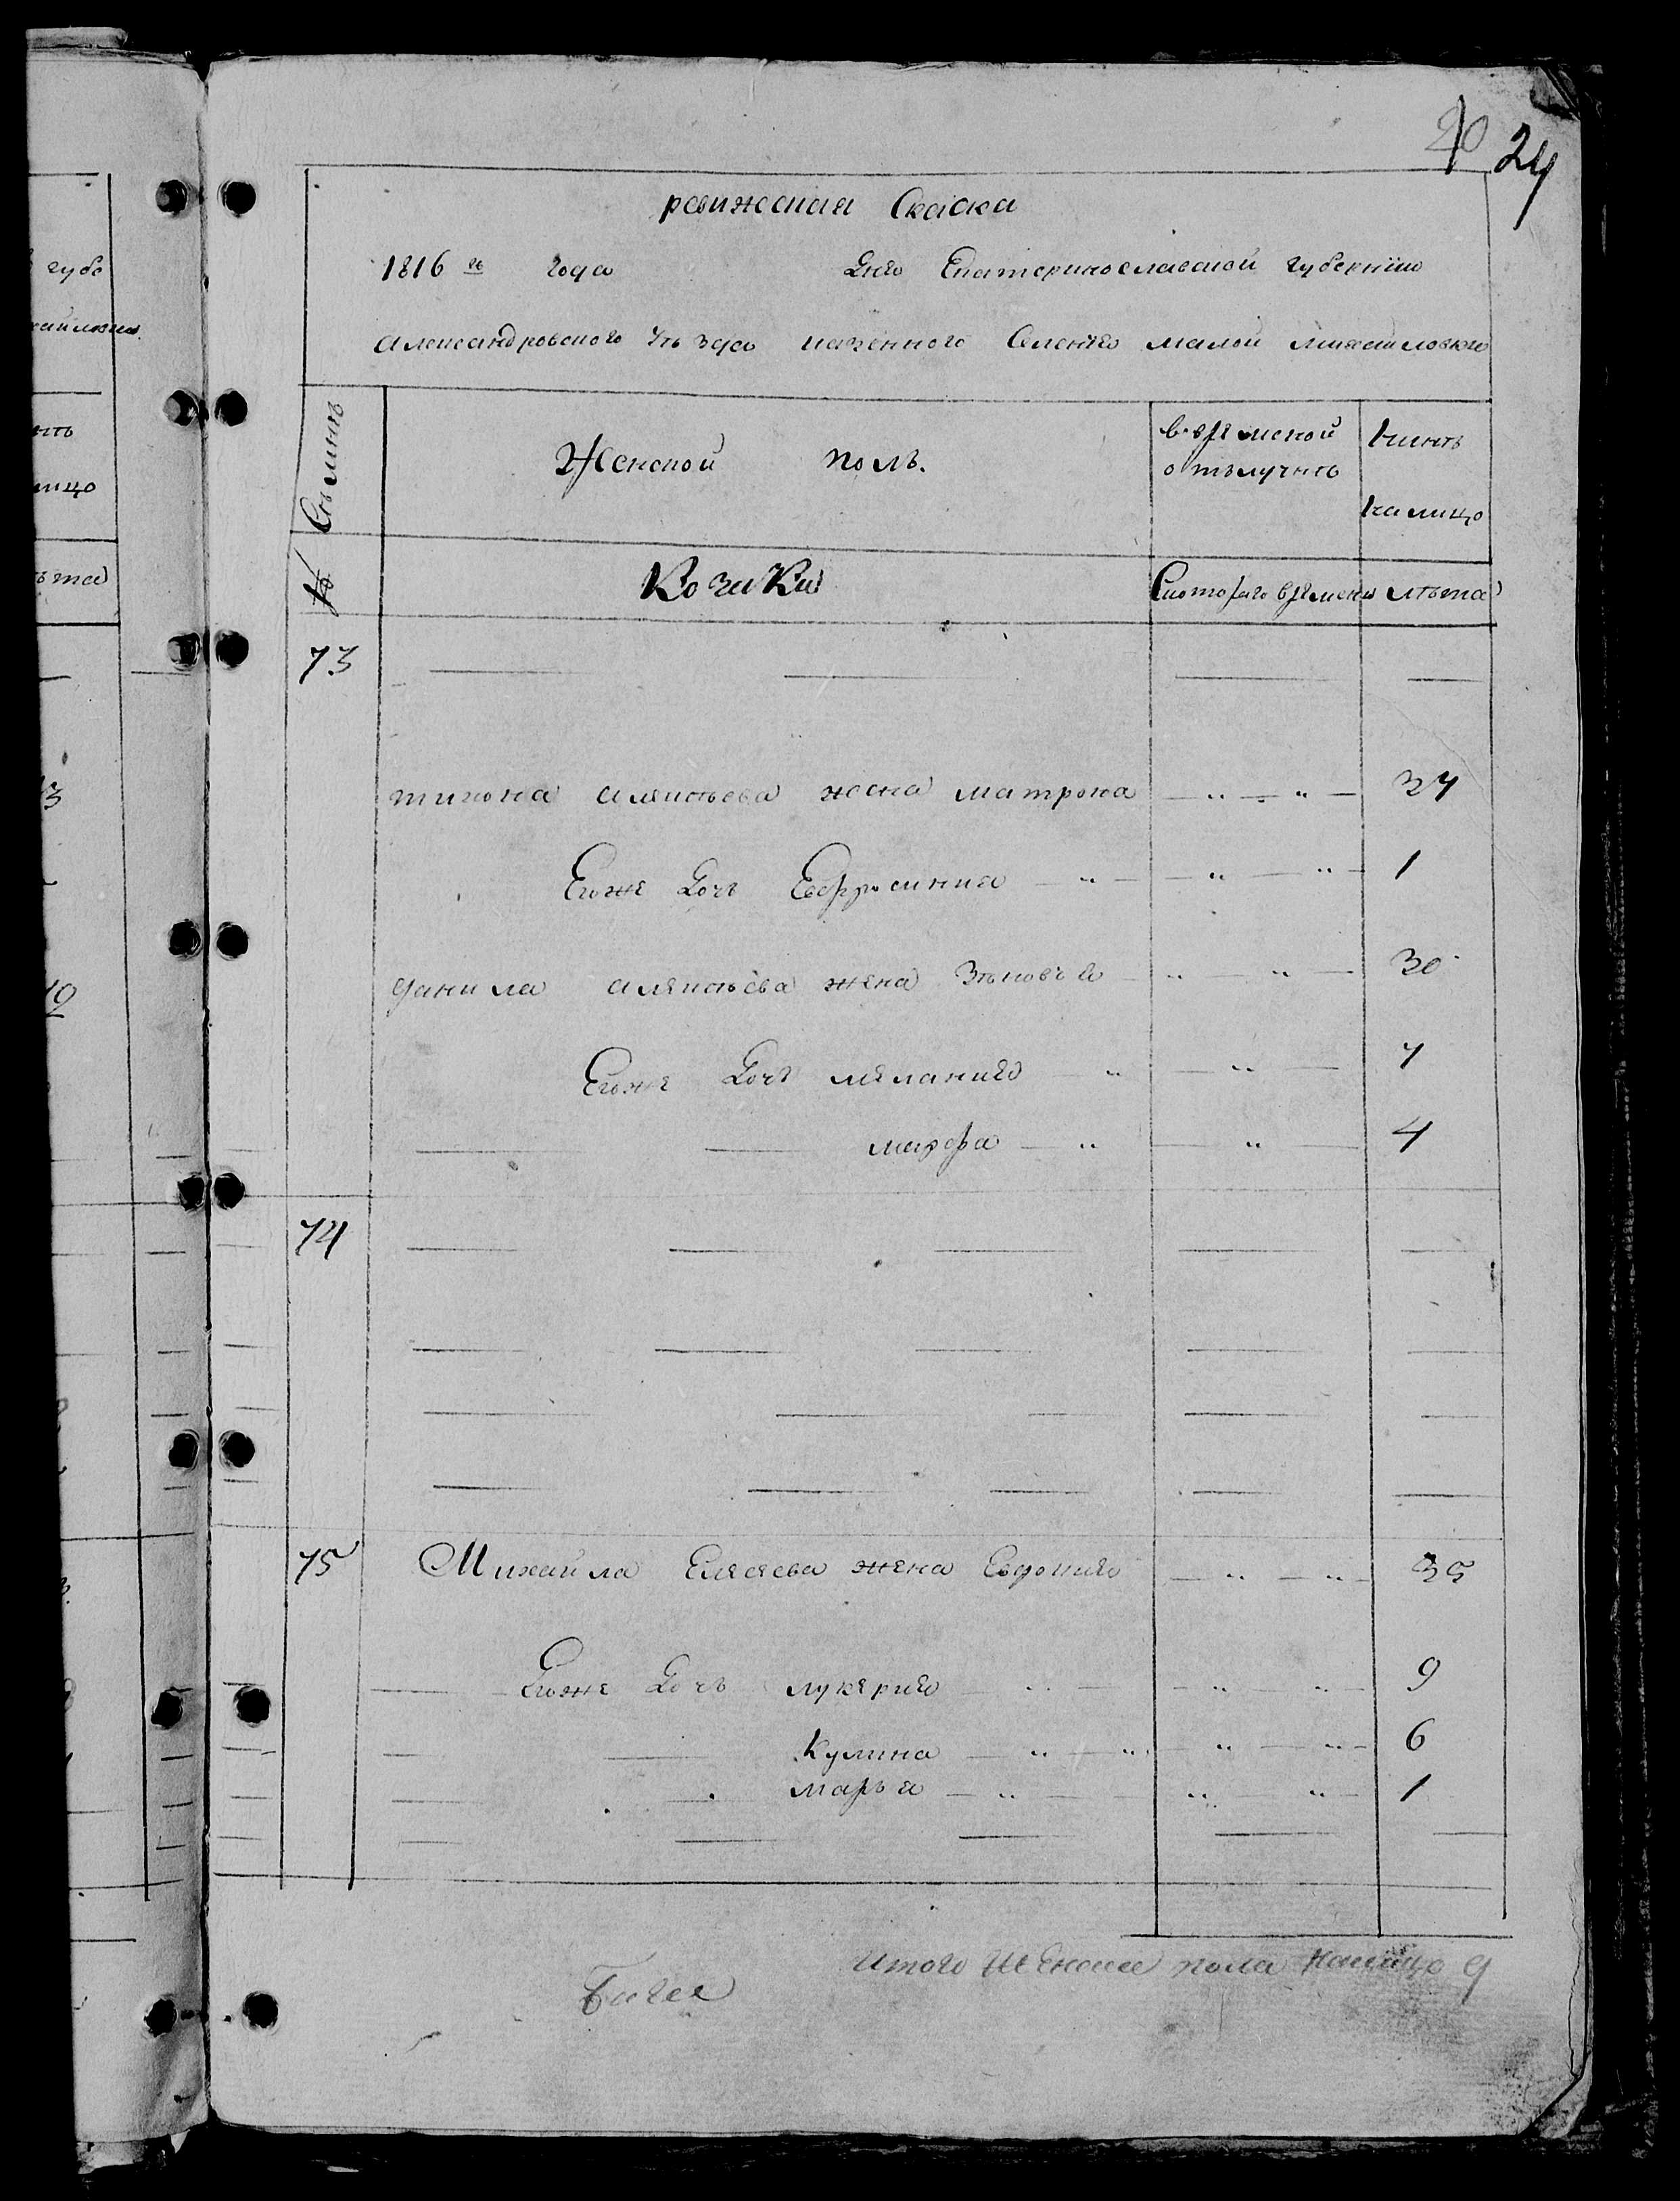 20 24
ревижская Скаска
1816 го года Дня Екатеринославской губернии
александровского уъзда казенного Селения малой михайловки
Съмииъ
Женской полъ.
въ времеnной отълучкъ
Нынъ налицо
№
Козачки
С которого времени
лъта
73
тихона алексъева жена матрона 34
Егоже Дочь Евфросиния 1
данила алексъева жена Зъновъя 30
Егоже Дочь мелания 7
марфа 4
74
75 Михайла Елесеева жена Евдокия 35
Егоже Дочь лукерия 9
Кулина 6
марья 1
Итого женска пола налицо 9